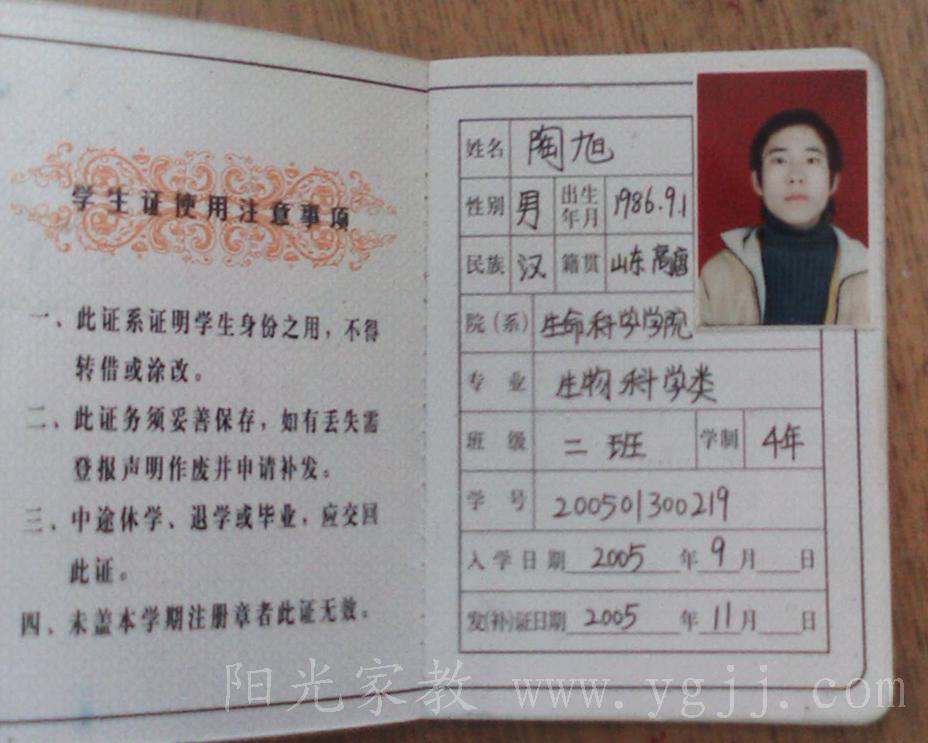 学生证使用注意事项
一、此证系证明学生身份之用，不得
转借或涂改。
二、此证务须妥善保存，如有丢失需
登报声明作废并申请补发。
三、中途休学、退学或毕业，应交回
此证。
四、未盖本学期注册章者此证无效。
姓名 陶旭
性别 男 出生年月 1986.9.1
民族 汉 籍贯 山东高唐
院（系） 生命科学学院
专业 生物科学类
班级 二班 学制 4年
学号 200501300219
入学日期 2005 年 9 月 日
发(补)证日期 2005 年 11 月 日
阳光家教 www.ygjj.com